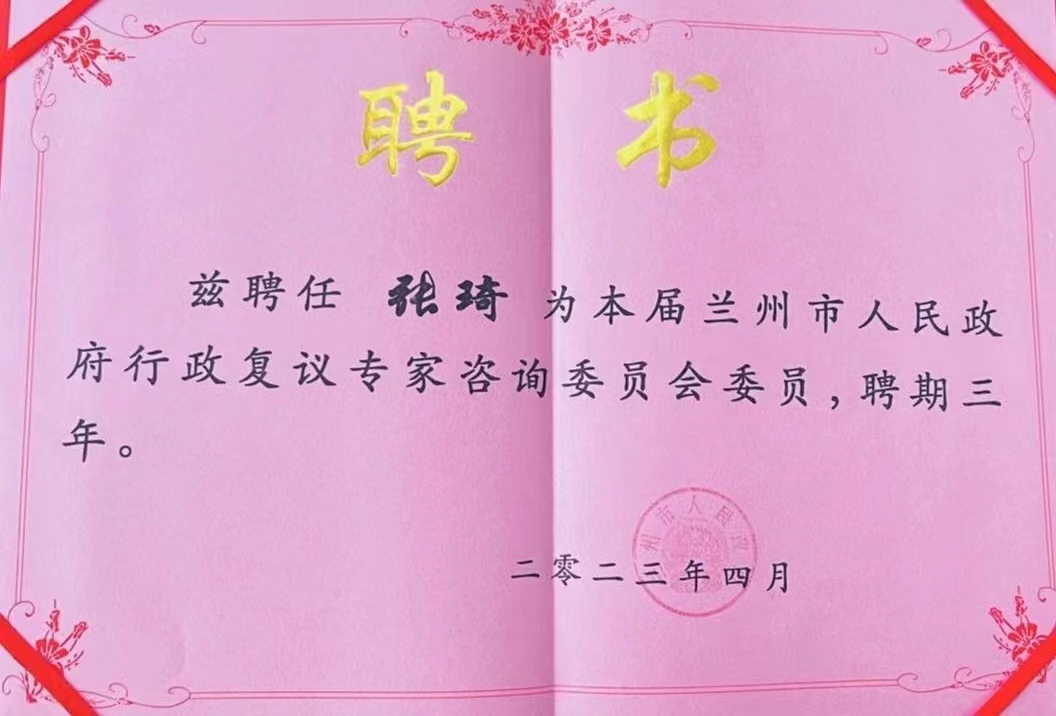 聘 书
兹聘任 张琦 为本届兰州市人民政
府行政复议专家咨询委员会委员,聘期三
年。
州市人民
二零二三年四月